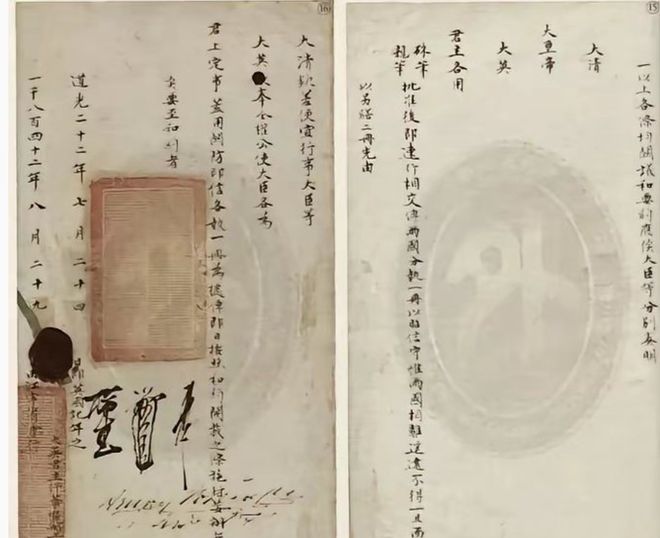 15
一以上各條均關議和要約應俟大臣等分別奏明
大清
大皇帝
大英
君主各用
硃筆
親筆
批准後即速行相交俾兩國分執一冊以昭信守惟兩國相離遙遠不得一旦而
以另繕二冊先由
16
大清欽差便宜行事大臣等
大英奉全權公使大臣各為
君上定事蓋用關防印信各執一冊為據俾即日按照和約開載之條施行妥辦無
矣要至和約者
道光二十二年七月二十四日即英國記年之
一千八百四十二年八月二十九
江寧省會行
大英君主